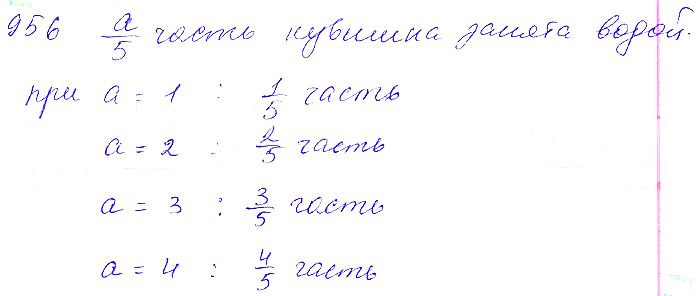 956 a/5 часть кувшина занята водой.
при a = 1 : 1/5 часть
a = 2 : 2/5 часть
a = 3 : 3/5 часть
a = 4 : 4/5 часть